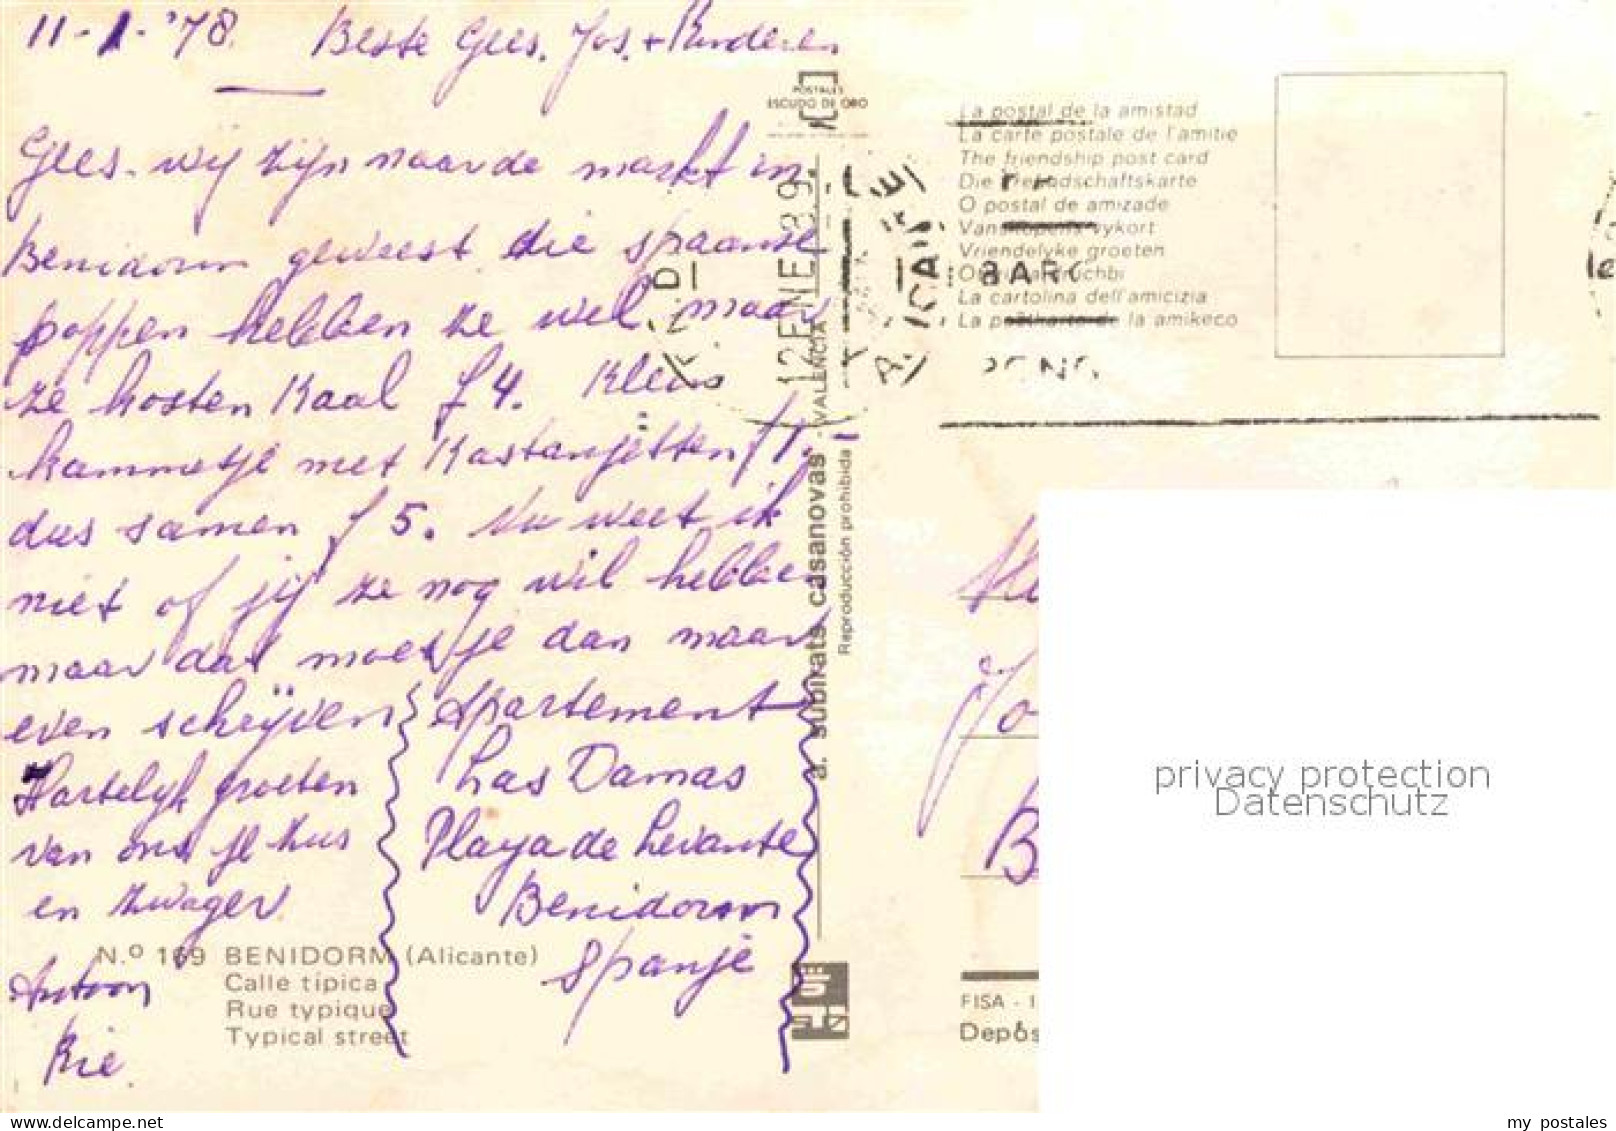 11-1-'78. Beste Gees. Jos. + Kinderen
Gees. wij zijn naar de markt in
Benidorm geweest die spaanse
poppen hebben ze wel maar
ze kosten kaal f 4. klein
kammetje met kastanjetten f 1,-
dus samen f 5. Nu weet ik
niet of jij ze nog wil hebben
maar dat moet je dan maar
even schrijven
Hartelijk groeten
van ons je zus
en zwager
Antoon
Rie.
Apartement
Las Damas
Playa de Levante
Benidorm
Spanje
N.º 169 BENIDORM (Alicante)
Calle típica
Rue typique
Typical street
POSTALES
ESCUDO DE ORO
a. subirats casanovas - VALENCIA
Reproducción prohibida
12 ENE
La postal de la amistad
La carte postale de l'amitie
The friendship post card
Die Freundschaftskarte
O postal de amizade
Vanskapens vykort
Vriendelyke groeten
La cartolina dell'amicizia
La poŝtkarto de la amikeco
BARC
Jo
B
FISA - I
Depós
privacy protection
Datenschutz
www.delcampe.net
my_postales